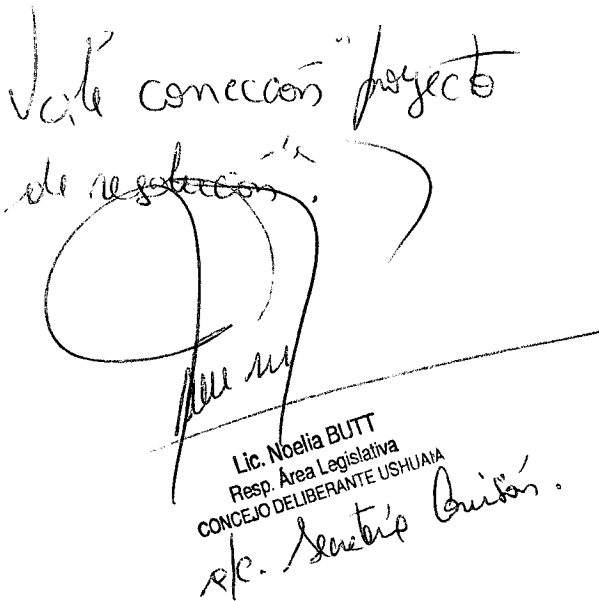 Vale corrección "proyecto
de resolución".
Lic. Noelia BUTT
Resp. Área Legislativa
CONCEJO DELIBERANTE USHUAIA
a/c. Secretaría Comisión.